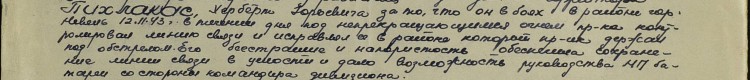 Пихлакас, Херберта Юрьевича за то, что он в боях в районе гор.
Невель 12.11.43 г. в течении дня под непрекращающимся огнем пр-ка конт-
ролировал линию связи и исправлял ее в районе который пр-ик держал
под обстрелом. Его бесстрашие и напористость обеспечила сохране-
ние линии связи в целости и дало возможность руководства НП ба-
тареи со стороны командира дивизиона.